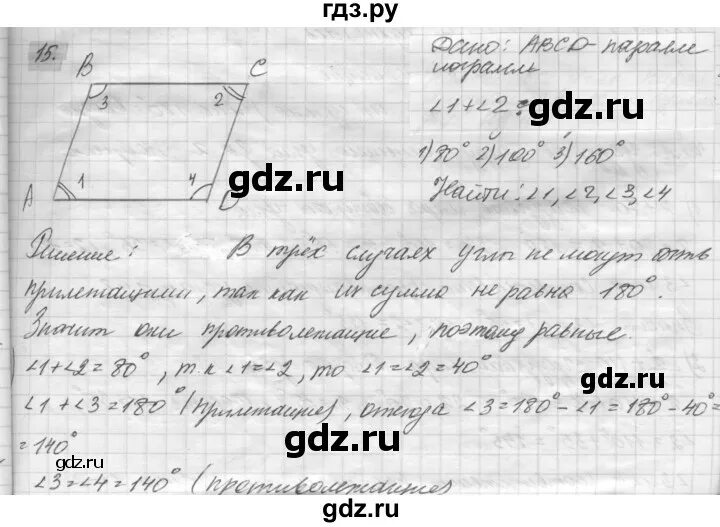 гдз.ру
15.
Дано: ABCD - паралле
лограмм
B C
3 2
∠1+∠2 :
1) 80° 2) 100° 3) 160°
A 1 4 D
Найти: ∠1, ∠2, ∠3, ∠4
gdz.ru gdz.ru
Решение: В трёх случаях углы не могут быть
прилежащими, так как их сумма не равна 180°.
Значит они противолежащие, поэтому равные.
∠1+∠2=80°, т.к ∠1=∠2, то ∠1=∠2=40°
∠1+∠3=180° (прилежащие), отсюда ∠3=180°-∠1=180°-40°=
=140°
gdz.ru gdz.ru
∠3=∠4=140° (противолежащие)
gdz.ru